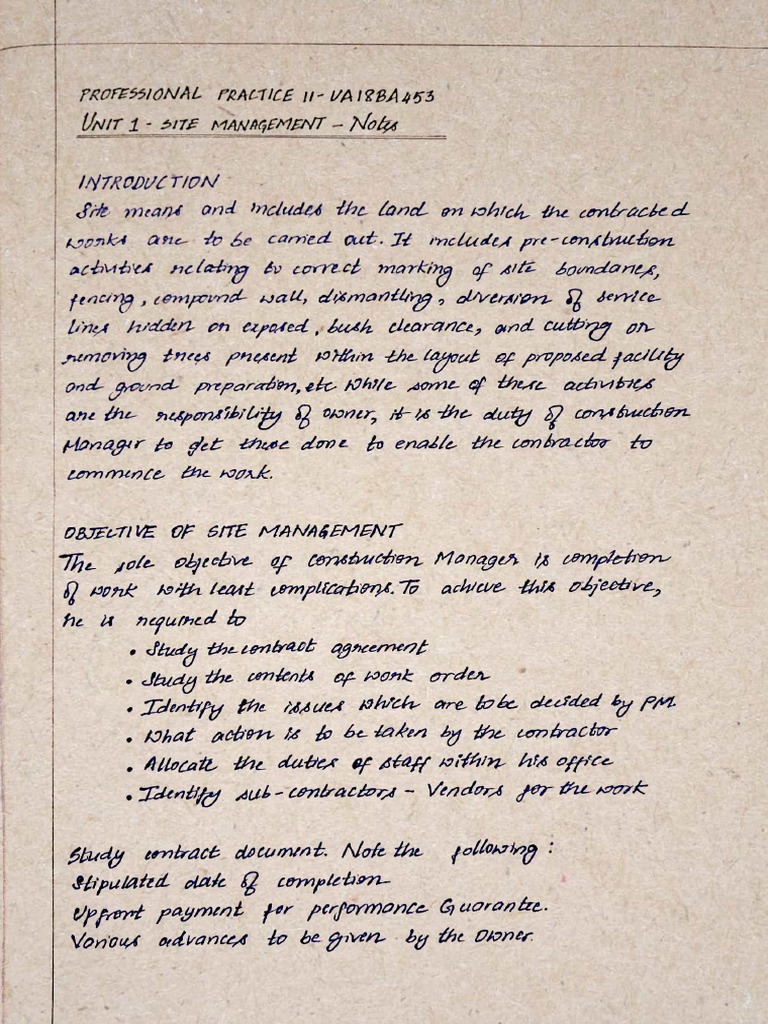 PROFESSIONAL PRACTICE II - UA18BA453
UNIT 1 - SITE MANAGEMENT - Notes
INTRODUCTION
Site means and includes the land on which the contracted
works are to be carried out. It includes pre-construction
activities relating to correct marking of site boundaries,
fencing, compound wall, dismantling, diversion of service
lines hidden or exposed, bush clearance, and cutting or
removing trees present within the layout of proposed facility
and ground preparation, etc While some of these activities
are the responsibility of owner, it is the duty of construction
Manager to get these done to enable the contractor to
commence the work.
OBJECTIVE OF SITE MANAGEMENT
The sole objective of construction Manager is completion
of work with least complications. To achieve this objective,
he is required to
• Study the contract agreement
• Study the contents of work order
• Identify the issues which are to be decided by PM.
• What action is to be taken by the contractor
• Allocate the duties of staff within his office
• Identify sub-contractors - Vendors for the work
Study contract document. Note the following:
Stipulated date of completion
Upfront payment for performance Guarantee.
Various advances to be given by the Owner.